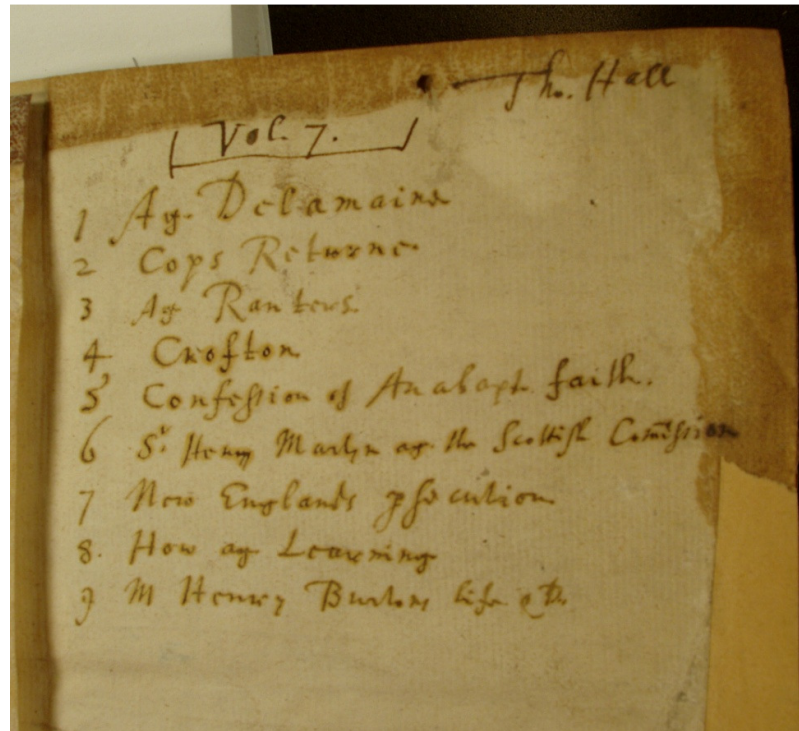 Tho. Hall
Vol. 7.
1 Ag. Delamaine
2 Cops Returne
3 Ag Ranters
4 Crofton
5 Confession of Anabapt. faith.
6 Sr. Henry Martyn ag. the Scottish Comission
7 New Englands psecution
8. How ag Learning
9 M Henry Burtons life &c